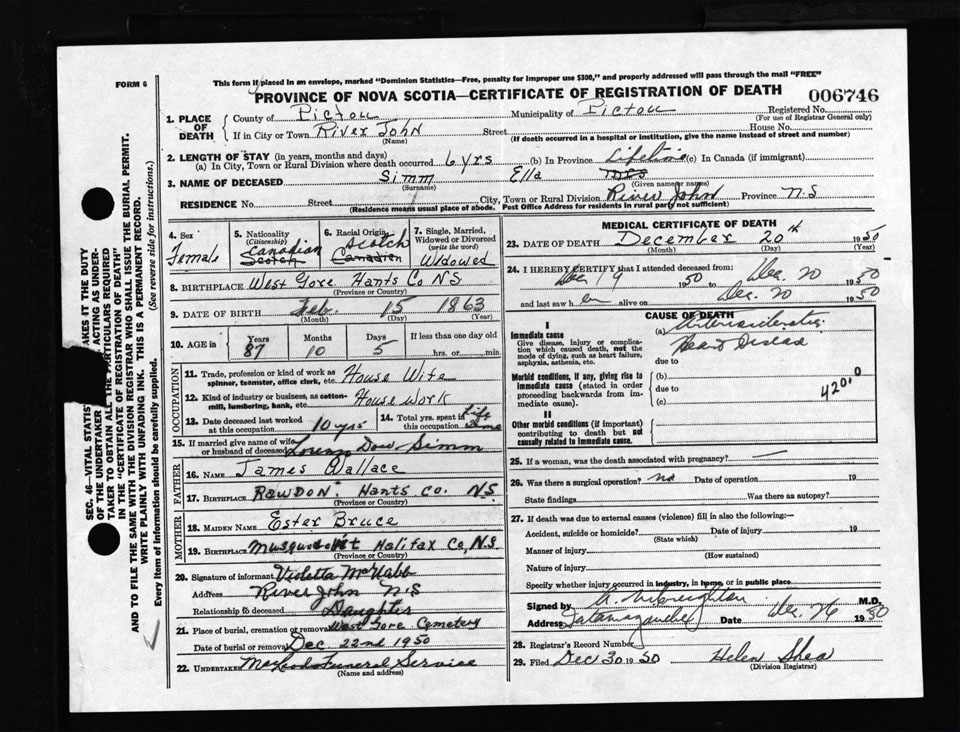 FORM 6
This form if placed in an envelope, marked "Dominion Statistics—Free, penalty for improper use $300," and properly addressed will pass through the mail "FREE"
PROVINCE OF NOVA SCOTIA—CERTIFICATE OF REGISTRATION OF DEATH
006746
1. PLACE OF DEATH County of Pictou Municipality of Pictou Registered No. (For use of Registrar General only)
If in City or Town River John (Name) Street House No. (If death occurred in a hospital or institution, give the name instead of street and number)
2. LENGTH OF STAY (in years, months and days)
(a) In City, Town or Rural Division where death occurred 6 yrs (b) In Province Lifetime (c) In Canada (if immigrant)
3. NAME OF DECEASED Simm (Surname) Ella Mrs (Given name or names)
RESIDENCE No. Street City, Town or Rural Division River John Province N.S
(Residence means usual place of abode. Post Office Address for residents in rural parts not sufficient)
4. Sex Female
5. Nationality (Citizenship) Canadian Scotch
6. Racial Origin Scotch Canadian
7. Single, Married, Widowed or Divorced (write the word) Widowed
8. BIRTHPLACE West Gore Hants Co NS
(Province or Country)
9. DATE OF BIRTH Feb. 15 1863
(Month) (Day) (Year)
10. AGE in Years 87 Months 10 Days 5 If less than one day old hrs. or min.
OCCUPATION
11. Trade, profession or kind of work as spinner, teamster, office clerk, etc. House Wife
12. Kind of industry or business, as cotton-mill, lumbering, bank, etc. House Work
13. Date deceased last worked at this occupation 10 yrs 14. Total yrs. spent in this occupation Life time
15. If married give name of wife or husband of deceased Lorenzo Dow Simm
FATHER
16. NAME James Wallace
17. BIRTHPLACE Rawdon Hants Co. N.S.
(Province or Country)
MOTHER
18. MAIDEN NAME Ester Bruce
19. BIRTHPLACE Musquodoit Halifax Co, N.S.
(Province or Country)
20. Signature of informant Violetta McNabb
Address River John N.S
Relationship to deceased Daughter
21. Place of burial, cremation or removal West Gore Cemetery
Date of burial or removal Dec 22nd 1950
22. UNDERTAKER MacLeod Funeral Service
(Name and address)
MEDICAL CERTIFICATE OF DEATH
23. DATE OF DEATH December 20th 1950
(Month) (Day) (Year)
24. I HEREBY CERTIFY that I attended deceased from:
Dec 19 1950 to Dec. 20 1950
and last saw h er alive on Dec. 20 1950
CAUSE OF DEATH
I
Immediate cause
Give disease, injury or complication which caused death, not the mode of dying, such as heart failure, asphyxia, asthenia, etc.
(a) Arteriosclerotic
Heart Disease
due to
Morbid conditions, if any, giving rise to immediate cause (stated in order proceeding backwards from immediate cause).
(b)
due to
(c)
420.0
II
Other morbid conditions (if important) contributing to death but not causally related to immediate cause.
25. If a woman, was the death associated with pregnancy? —
26. Was there a surgical operation? no Date of operation 19
State findings Was there an autopsy?
27. If death was due to external causes (violence) fill in also the following:—
Accident, suicide or homicide? Date of injury 19
(State which)
Manner of injury
(How sustained)
Nature of injury
Specify whether injury occurred in industry, in home, or in public place
Signed by M.D.
Address Tatamagouche Date Dec. 26 1950
28. Registrar's Record Number
29. Filed Dec 30 1950 Helen Shea
(Division Registrar)
OF THE UNDERTAKER
TAKER TO OBTAIN ALL THE PARTICULARS REQUIRED
IN THE "CERTIFICATE OF REGISTRATION OF DEATH"
AND TO FILE THE SAME WITH THE DIVISION REGISTRAR WHO SHALL ISSUE THE BURIAL PERMIT.
WRITE PLAINLY WITH UNFADING INK. THIS IS A PERMANENT RECORD.
Every item of information should be carefully supplied. (See reverse side for instructions.)